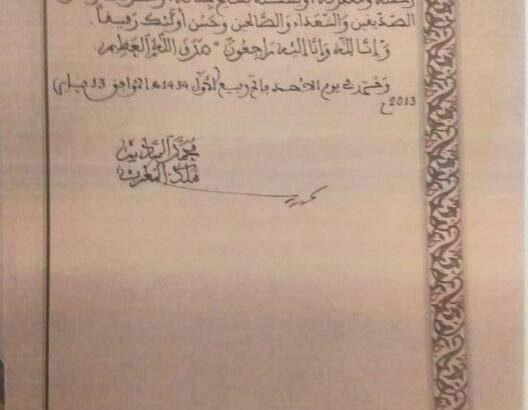 الصديقين والشهداء والصالحين وحسن أولئك رفيقا.
"وإنا لله وإنا إليه راجعون" صدق الله العظيم.
في يوم الأحد فاتح ربيع الأول 1434 هـ الموافق 13 يناير
2013 م
محمد السادس
ملك المغرب